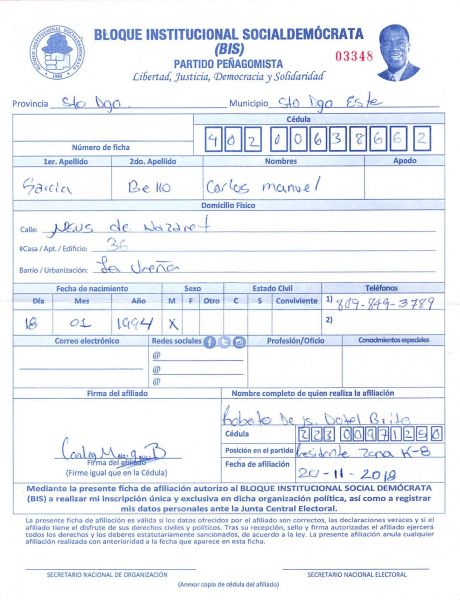 BLOQUE INSTITUCIONAL SOCIALDEMÓCRATA
(BIS)
03348
PARTIDO PEÑAGOMISTA
Libertad, Justicia, Democracia y Solidaridad
Provincia Sto Dgo. Municipio Sto Dgo Este
Cédula
Número de ficha 402 0063866 2
1er. Apellido 2do. Apellido Nombres Apodo
Garcia Bello Carlos manuel
Domicilio Físico
Calle: Jesus de Nazaret
#Casa / Apt. / Edificio: 36
Barrio / Urbanización: La Ureña
Fecha de nacimiento Sexo Estado Civil Teléfonos
Día Mes Año M F Otro C S Conviviente 1) 809-849-3789
18 01 1994 X 2)
Correo electrónico Redes sociales Profesión/Oficio Conocimientos especiales
@
@
@
Firma del afiliado Nombre completo de quien realiza la afiliación
Roberto De Js. Dotel Brito
Cédula 223 0097125 0
Firma del afiliado Posición en el partido Presidente Zona K-8
(Firme igual que en la Cédula) Fecha de afiliación 20-11-2018
Mediante la presente ficha de afiliación autorizo al BLOQUE INSTITUCIONAL SOCIAL DEMÓCRATA
(BIS) a realizar mi inscripción única y exclusiva en dicha organización política, así como a registrar
mis datos personales ante la Junta Central Electoral.
La presente ficha de afiliación es válida si los datos ofrecidos por el afiliado son correctos, las declaraciones veraces y sí el
afiliado tiene el disfrute de sus derechos civiles y políticos. Tras su recepción, sello y firma autorizados el afiliado ejercerá
todos los derechos y los deberes estatutariamente sancionados, de acuerdo a la ley. La presente afiliación anula cualquier
afiliación realizada con anterioridad a la fecha que aparece en esta ficha.
SECRETARIO NACIONAL DE ORGANIZACIÓN SECRETARIO NACIONAL ELECTORAL
(Anexar copia de cédula del afiliado)